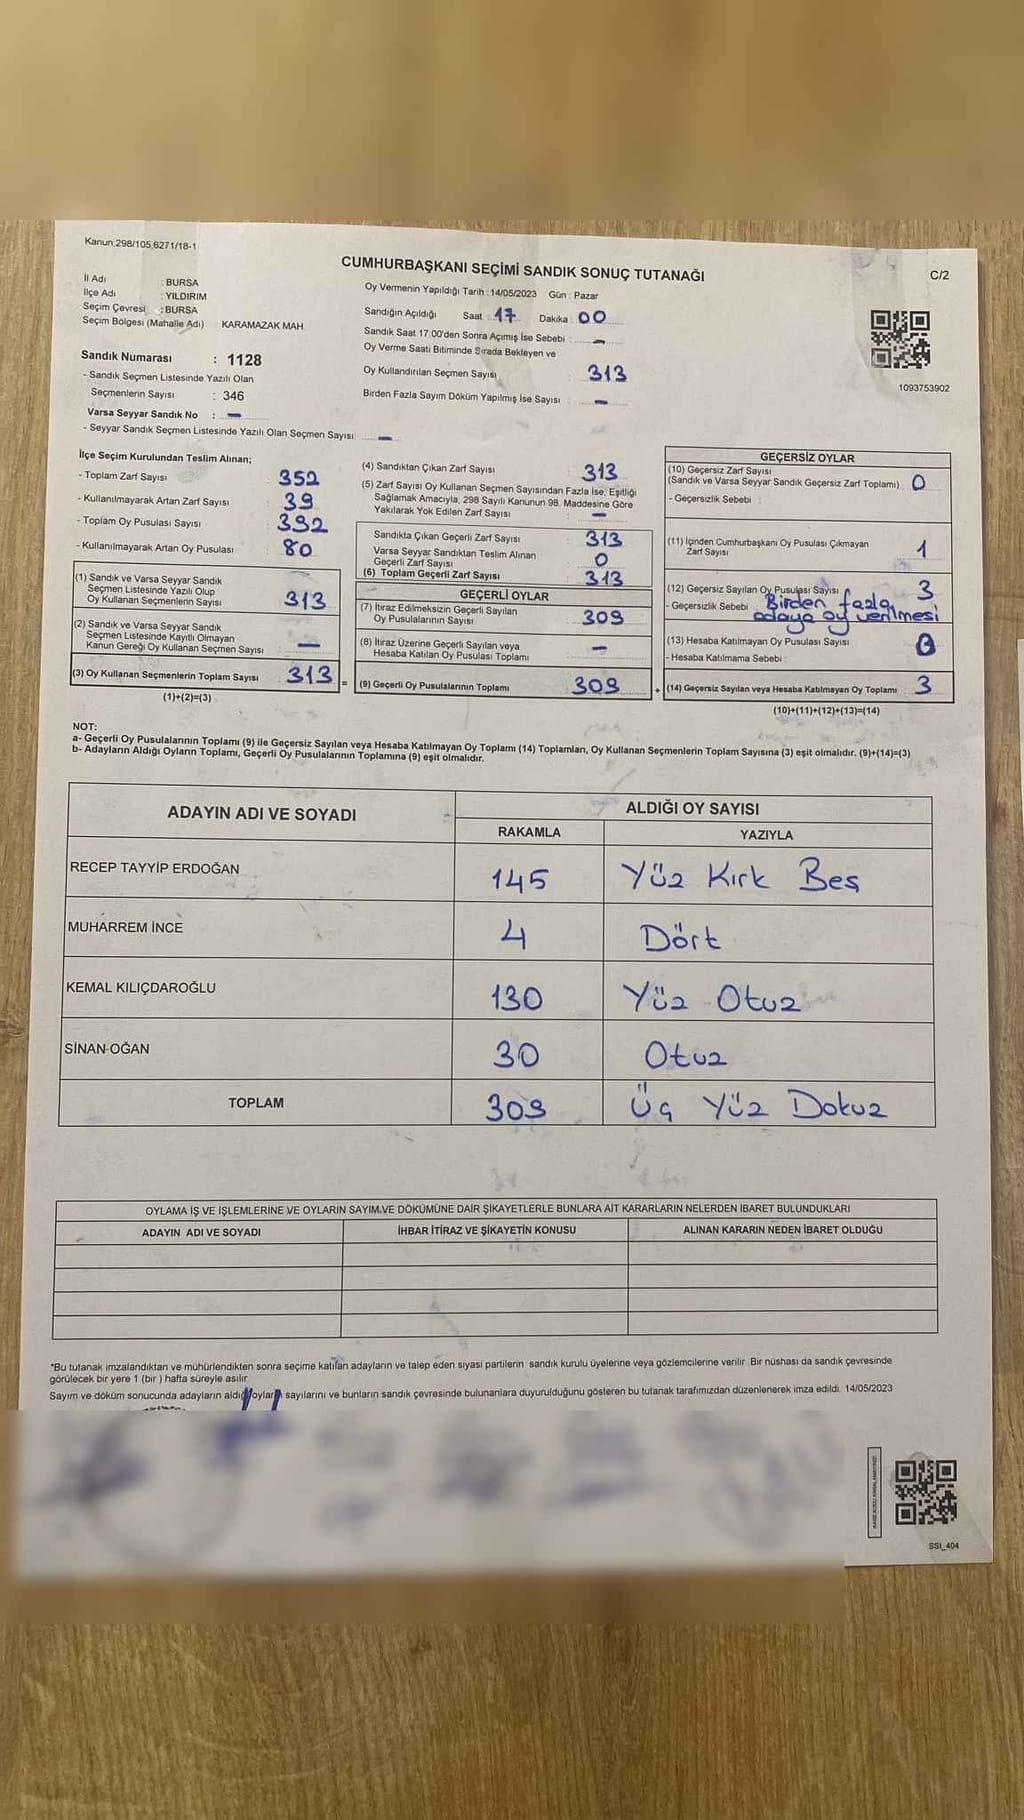 Kanun:298/105,6271/18-1
CUMHURBAŞKANI SEÇİMİ SANDIK SONUÇ TUTANAĞI
C/2
İl Adı : BURSA
İlçe Adı : YILDIRIM
Seçim Çevresi : BURSA
Seçim Bölgesi (Mahalle Adı) KARAMAZAK MAH.
Oy Vermenin Yapıldığı Tarih :14/05/2023 Gün : Pazar
Sandığın Açıldığı Saat : 17 Dakika : 00
Sandık Saat 17.00'den Sonra Açımış İse Sebebi : –
Oy Verme Saati Bitiminde Sırada Bekleyen ve
Oy Kullandırılan Seçmen Sayısı : 313
Birden Fazla Sayım Döküm Yapılmış İse Sayısı : –
1093753902
Sandık Numarası : 1128
- Sandık Seçmen Listesinde Yazılı Olan
Seçmenlerin Sayısı : 346
Varsa Seyyar Sandık No : –
- Seyyar Sandık Seçmen Listesinde Yazılı Olan Seçmen Sayısı: –
İlçe Seçim Kurulundan Teslim Alınan;
- Toplam Zarf Sayısı : 352
- Kullanılmayarak Artan Zarf Sayısı : 39
- Toplam Oy Pusulası Sayısı : 392
- Kullanılmayarak Artan Oy Pusulası : 80
(1) Sandık ve Varsa Seyyar Sandık
Seçmen Listesinde Yazılı Olup
Oy Kullanan Seçmenlerin Sayısı : 313
(2) Sandık ve Varsa Seyyar Sandık
Seçmen Listesinde Kayıtlı Olmayan
Kanun Gereği Oy Kullanan Seçmen Sayısı –
(3) Oy Kullanan Seçmenlerin Toplam Sayısı 313 =
(1)+(2)=(3)
(4) Sandıktan Çıkan Zarf Sayısı : 313
(5) Zarf Sayısı Oy Kullanan Seçmen Sayısından Fazla İse, Eşitliği
Sağlamak Amacıyla, 298 Sayılı Kanunun 98. Maddesine Göre
Yakılarak Yok Edilen Zarf Sayısı : –
Sandıkta Çıkan Geçerli Zarf Sayısı : 313
Varsa Seyyar Sandıktan Teslim Alınan
Geçerli Zarf Sayısı : 0
(6) Toplam Geçerli Zarf Sayısı : 313
GEÇERLİ OYLAR
(7) İtiraz Edilmeksizin Geçerli Sayılan
Oy Pusulalarının Sayısı : 309
(8) İtiraz Üzerine Geçerli Sayılan veya
Hesaba Katılan Oy Pusulası Toplamı : –
(9) Geçerli Oy Pusulalarının Toplamı 309 +
GEÇERSİZ OYLAR
(10) Geçersiz Zarf Sayısı
(Sandık ve Varsa Seyyar Sandık Geçersiz Zarf Toplamı) : 0
- Geçersizlik Sebebi :
(11) İçinden Cumhurbaşkanı Oy Pusulası Çıkmayan
Zarf Sayısı : 1
(12) Geçersiz Sayılan Oy Pusulası Sayısı : 3
- Geçersizlik Sebebi : Birden fazla
adaya oy verilmesi
(13) Hesaba Katılmayan Oy Pusulası Sayısı : 0
- Hesaba Katılmama Sebebi :
(14) Geçersiz Sayılan veya Hesaba Katılmayan Oy Toplamı 3
(10)+(11)+(12)+(13)=(14)
NOT:
a- Geçerli Oy Pusulalarının Toplamı (9) ile Geçersiz Sayılan veya Hesaba Katılmayan Oy Toplamı (14) Toplamları, Oy Kullanan Seçmenlerin Toplam Sayısına (3) eşit olmalıdır. (9)+(14)=(3)
b- Adayların Aldığı Oyların Toplamı, Geçerli Oy Pusulalarının Toplamına (9) eşit olmalıdır.
ADAYIN ADI VE SOYADI ALDIĞI OY SAYISI
RAKAMLA YAZIYLA
RECEP TAYYİP ERDOĞAN 145 Yüz Kırk Beş
MUHARREM İNCE 4 Dört
KEMAL KILIÇDAROĞLU 130 Yüz Otuz
SİNAN OĞAN 30 Otuz
TOPLAM 309 Üç Yüz Dokuz
OYLAMA İŞ VE İŞLEMLERİNE VE OYLARIN SAYIM,VE DÖKÜMÜNE DAİR ŞİKAYETLERLE BUNLARA AİT KARARLARIN NELERDEN İBARET BULUNDUKLARI
ADAYIN ADI VE SOYADI İHBAR İTİRAZ VE ŞİKAYETİN KONUSU ALINAN KARARIN NEDEN İBARET OLDUĞU
*Bu tutanak imzalandıktan ve mühürlendikten sonra seçime katılan adayların ve talep eden siyasi partilerin sandık kurulu üyelerine veya gözlemcilerine verilir. Bir nüshası da sandık çevresinde
görülecek bir yere 1 (bir ) hafta süreyle asılır.
Sayım ve döküm sonucunda adayların aldığı oyların sayılarını ve bunların sandık çevresinde bulunanlara duyurulduğunu gösteren bu tutanak tarafımızdan düzenlenerek imza edildi. 14/05/2023
SSI_404